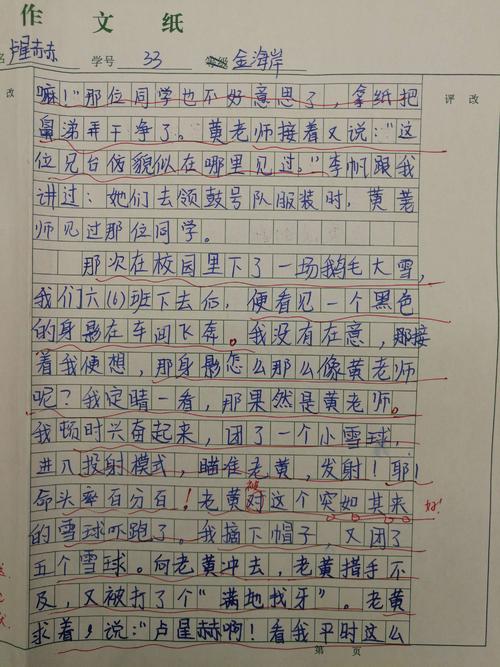 作文纸
名 卢星赫 学号 33 金海岸
改 评改
嘛!”那位同学也不好意思了,拿纸把
鼻涕弄干净了。黄老师接着又说:“这
位兄台仿貌似在哪里见过。”李帆跟我
讲过:她们去领鼓号队服装时,黄老
师见过那位同学。
那次在校园里下了一场鹅毛大雪,
我们六(6)班下去后,便看见一个黑色
的身影在车间飞奔。我没有在意,那接
着我便想,那身影怎么那么像黄老师
呢?我定晴一看,那果然是黄老师。
我顿时兴奋起来,团了一个小雪球,
进入投射模式,瞄准老黄,发射!耶!
命头率百分百!老黄对这个突如其来
被
好!
的雪球吓跑了。我摘下帽子,又团了
五个雪球。向老黄冲去,老黄措手不
及,又被打了个“满地找牙”。老黄
求着,说:“卢星赫啊!看我平时这么
第 页